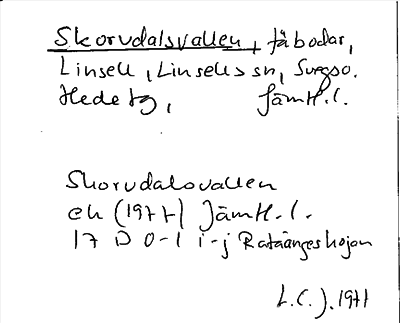 Skorvdalsvallen, fäbodar,
Linsell, Linsells sn, Svegs o.
Hede tg, Jämtl. l.
Skorvdalsvallen
ek (1977) Jämtl. l.
17 D 0-1 i-j Ratängeshojan
L.C.J. 1971